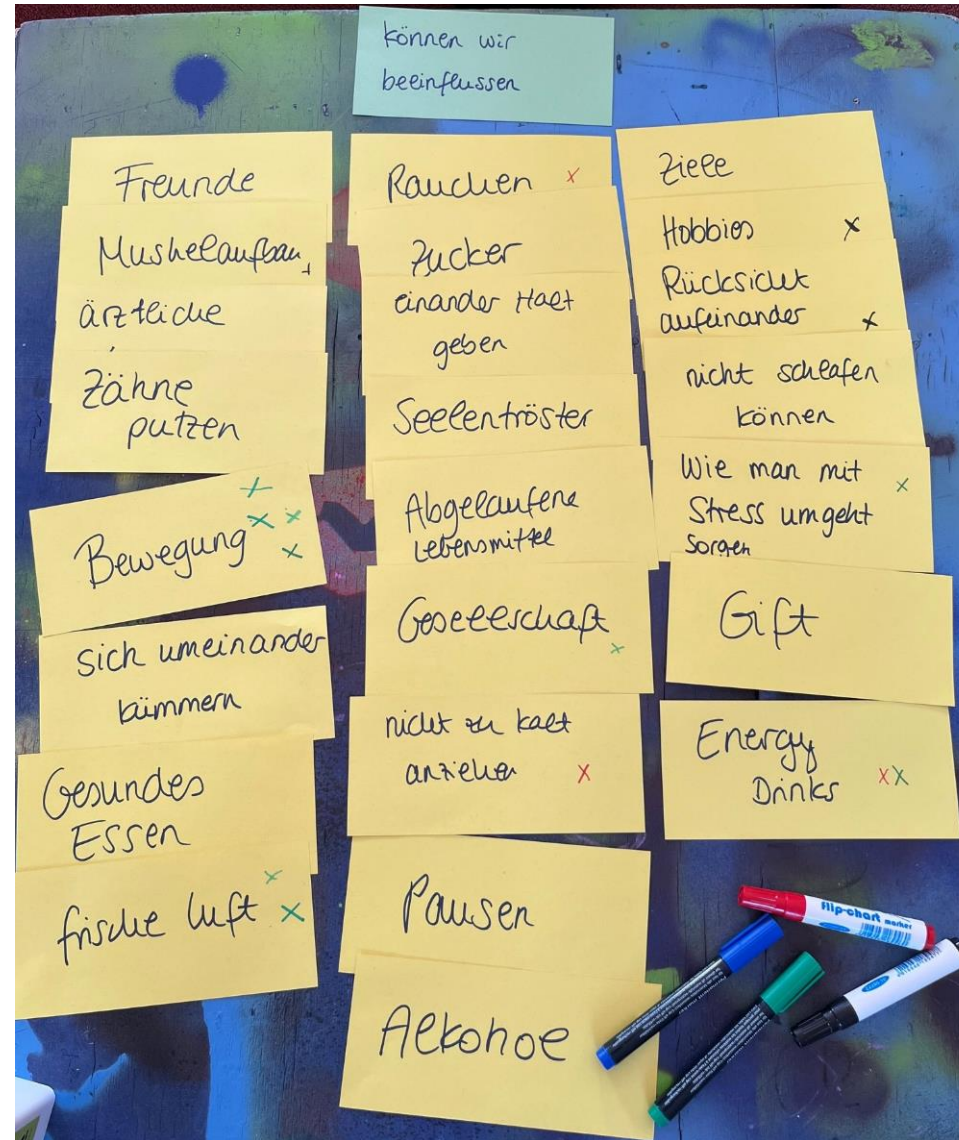 können wir
beeinflussen
Freunde
Muskelaufbau
ärztliche
Zähne
putzen
Bewegung
sich umeinander
kümmern
Gesundes
Essen
frische Luft
Rauchen
Zucker
einander Halt
geben
Seelentröster
Abgelaufene
Lebensmittel
Gesellschaft
nicht zu kalt
anziehen
Pausen
Alkohol
Ziele
Hobbies
Rücksicht
aufeinander
nicht schlafen
können
Wie man mit
Stress umgeht
Sorgen
Gift
Energy
Drinks
flip-chart marker